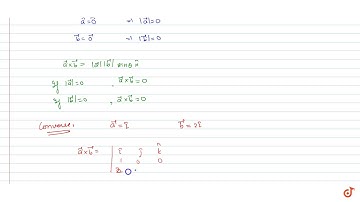 a⃗ = 0⃗ ⇒ |a⃗| = 0
b⃗ = 0⃗ ⇒ |b⃗| = 0
a⃗×b⃗ = |a⃗| |b⃗| sinθ n̂
If |a⃗| = 0 , a⃗×b⃗ = 0
If |b⃗| = 0 , a⃗×b⃗ = 0
Converse: a⃗ = î b⃗ = 2î
a⃗×b⃗ = | î ĵ k̂
1 0 0
2 0